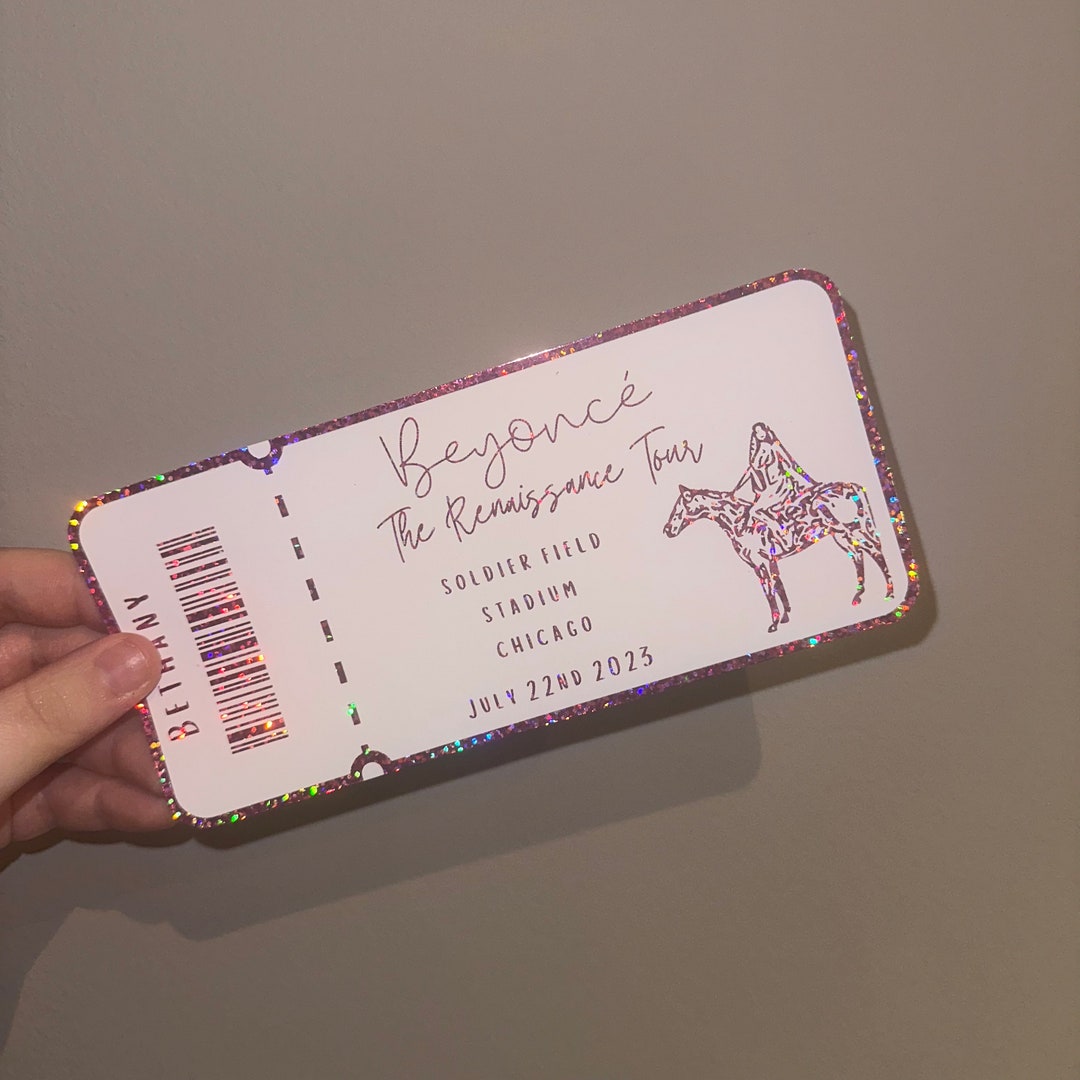 BETHANY
Beyoncé
The Renaissance Tour
SOLDIER FIELD
STADIUM
CHICAGO
JULY 22ND 2023